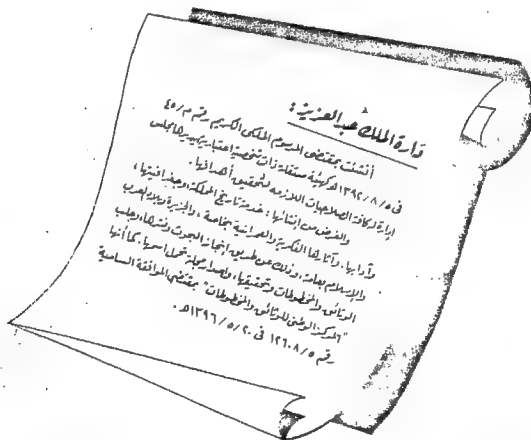 دارة الملك عبد العزيز :
أنشئت بمقتضى المرسوم الملكى الكريم رقم م/٤٥
فى ١٣٩٢/٨/٥هـ كهيئة مستقلة ذات شخصية اعتبارية يديرها مجلس
إدارة له كافة الصلاحيات اللازمة لتحقيق أهدافها .
والغرض من إنشائها : خدمة تاريخ المملكة وجغرافيتها ،
وآدابها ، وآثارها الفكرية والعمرانية بخاصة ، والجزيرة وبلاد العرب
والإسلام بعامة ، وذلك عن طريق إنجاز البحوث ونشرها ، وجلب
الوثائق والمخطوطات وتحقيقها ، وإصدار مجلة تحمل اسمها . كما أنها
"المركز الوطنى للوثائق والمخطوطات" بمقتضى الموافقة السامية
رقم ١٢٦٠٨/٥ فى ١٣٩٦/٥/٢٠هـ .